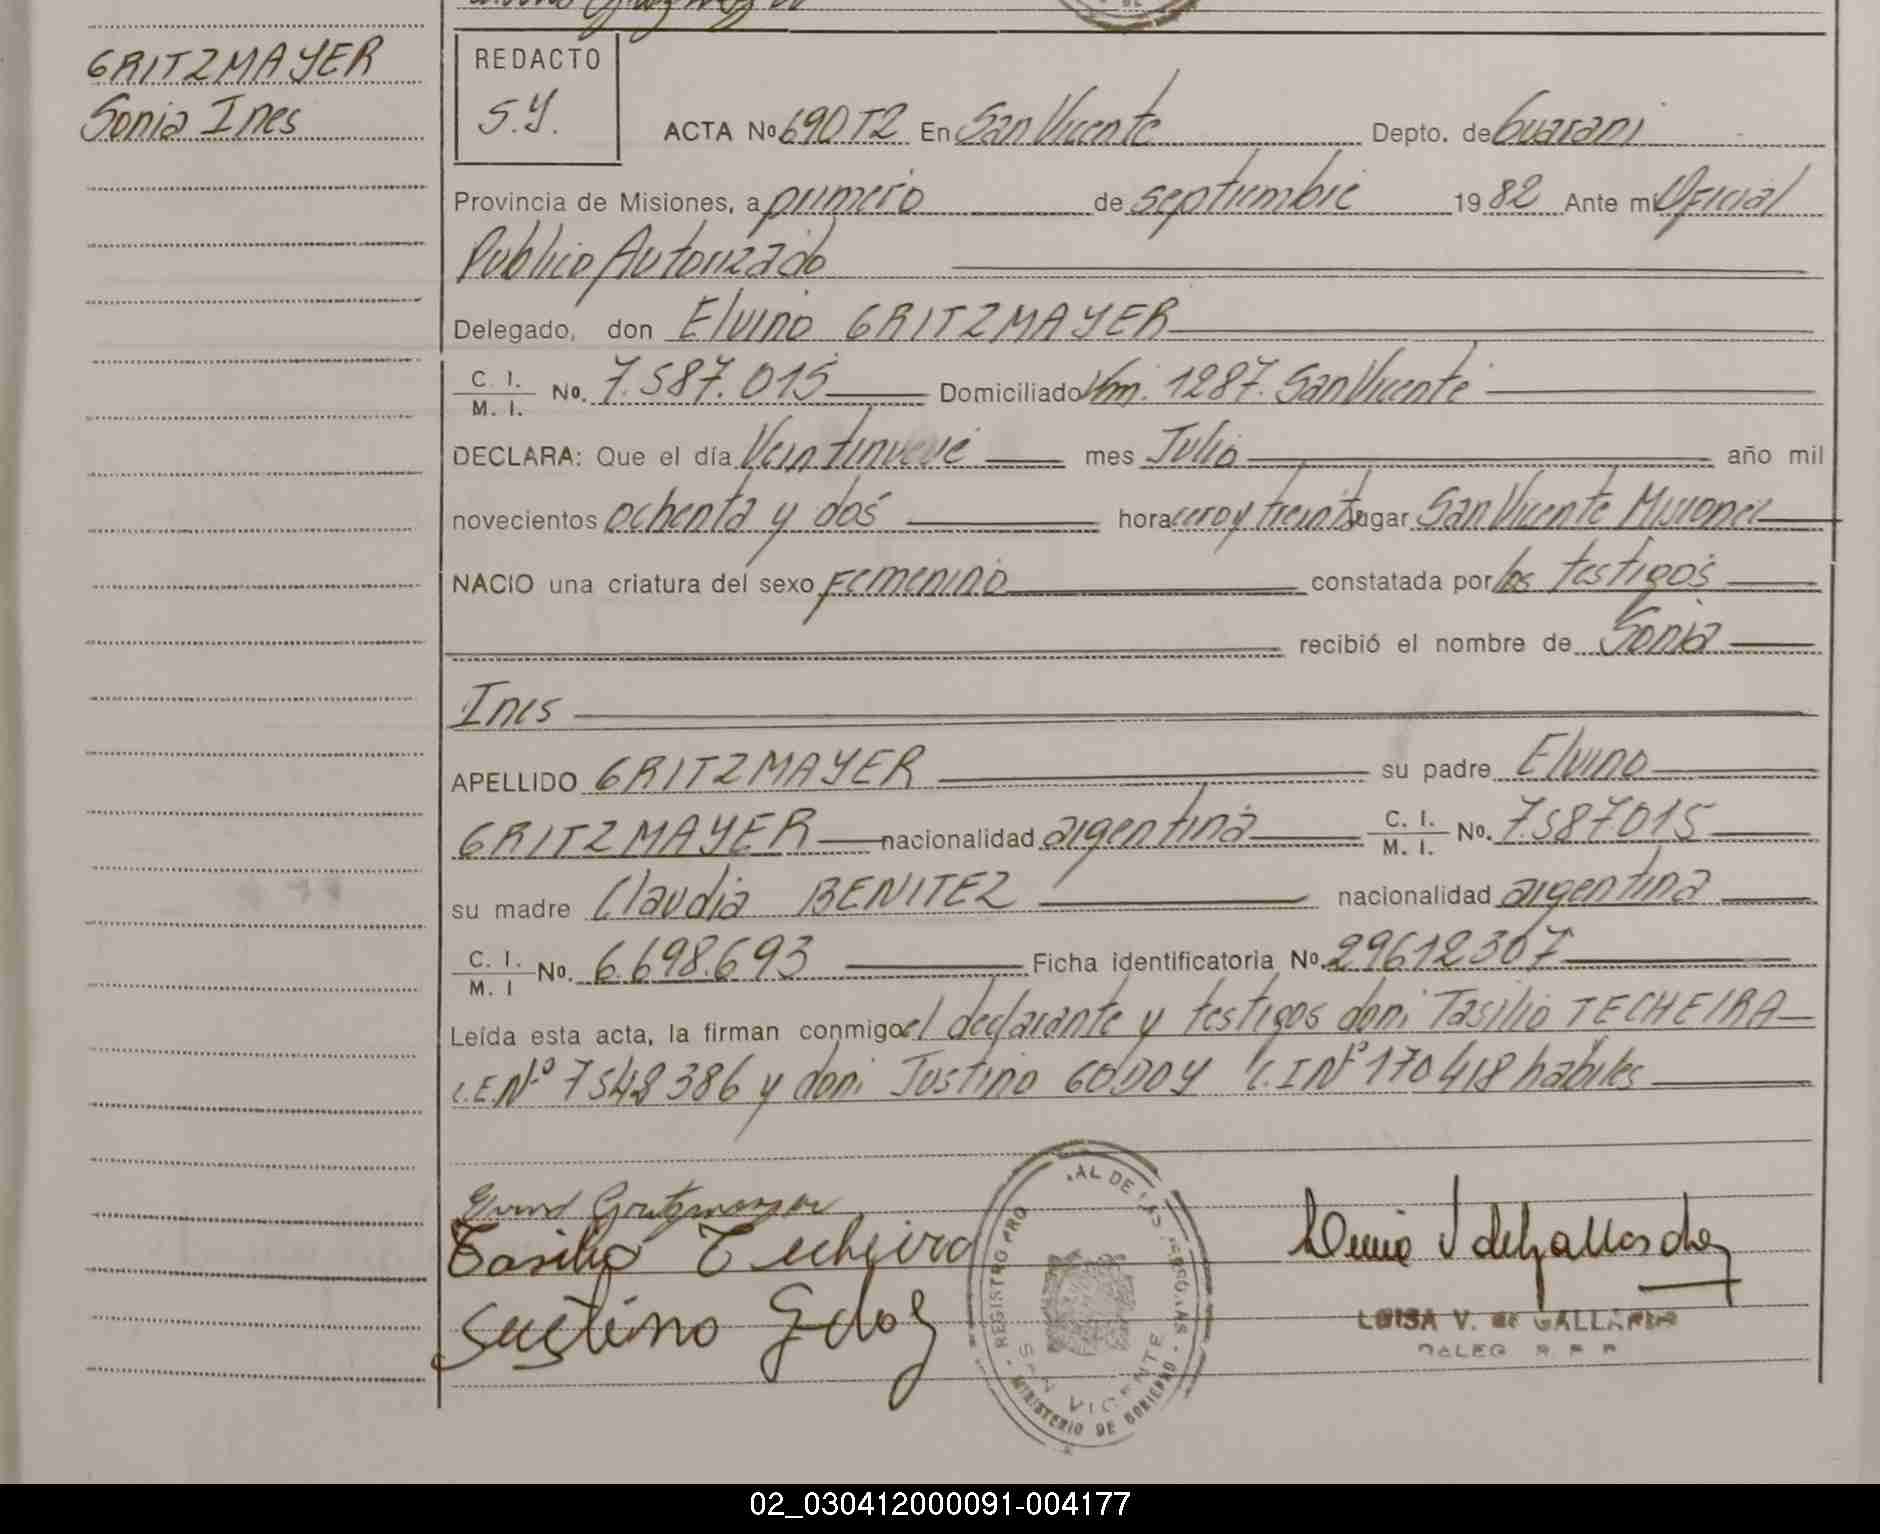 GRITZMAYER
Sonia Ines
REDACTO
S.Y.
ACTA No 690 T2 En San Vicente Depto. de Guarani
Provincia de Misiones, a primero de septiembre 1982 Ante mi Oficial
Publico Autorizado
Delegado, don Elvino GRITZMAYER
C. I. / M. I. No. 7.587.015 Domiciliado Km. 1287. San Vicente
DECLARA: Que el día Veintinueve mes Julio año mil
novecientos ochenta y dos hora cero y treinta lugar San Vicente Misiones
NACIO una criatura del sexo Femenino constatada por los testigos
recibió el nombre de Sonia
Ines
APELLIDO GRITZMAYER su padre Elvino
GRITZMAYER nacionalidad argentina C. I. / M. I. No. 7587015
su madre Claudia BENITEZ nacionalidad argentina
C. I. / M. I No. 6.698.693 Ficha identificatoria No. 29612307
Leída esta acta, la firman conmigo el declarante y testigos don: Tasilio TECHEIRA
L.E Nº 7548386 y don: Justino GODOY C.I Nº 170418 habiles
Gritzmayer
Tasilio Techeira
Justino Godoy
REGISTRO PRO AL DE LAS PERSONAS
SAN VICENTE
MINISTERIO DE GOBIERNO
LUISA V. DE GALLARDO
DELEG. R. P. P.
02_030412000091-004177